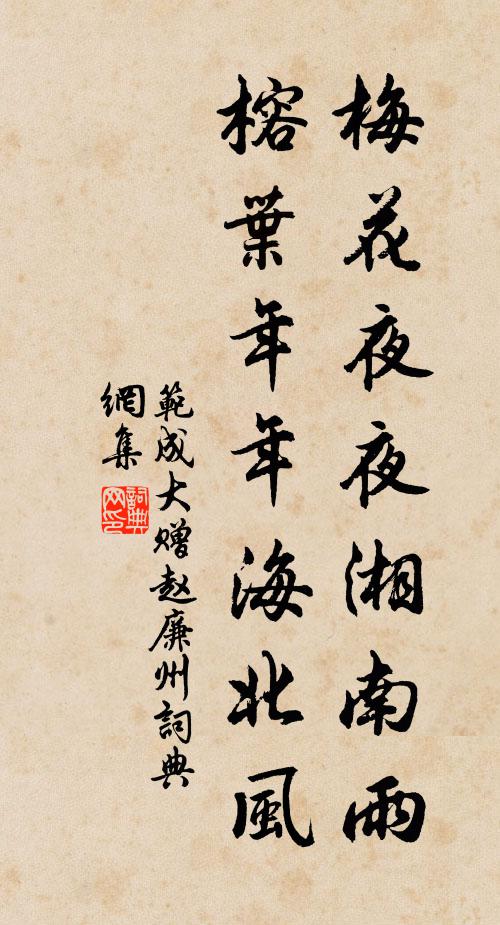 梅花夜夜湘南雨
榕葉年年海北風
範成大赠赵廉州詞典
網集
詞典
网印